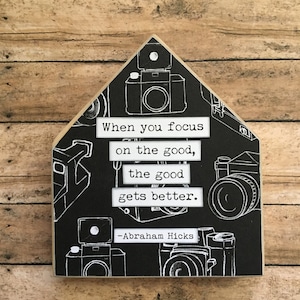 When you focus
on the good,
the good
gets better.
-Abraham Hicks